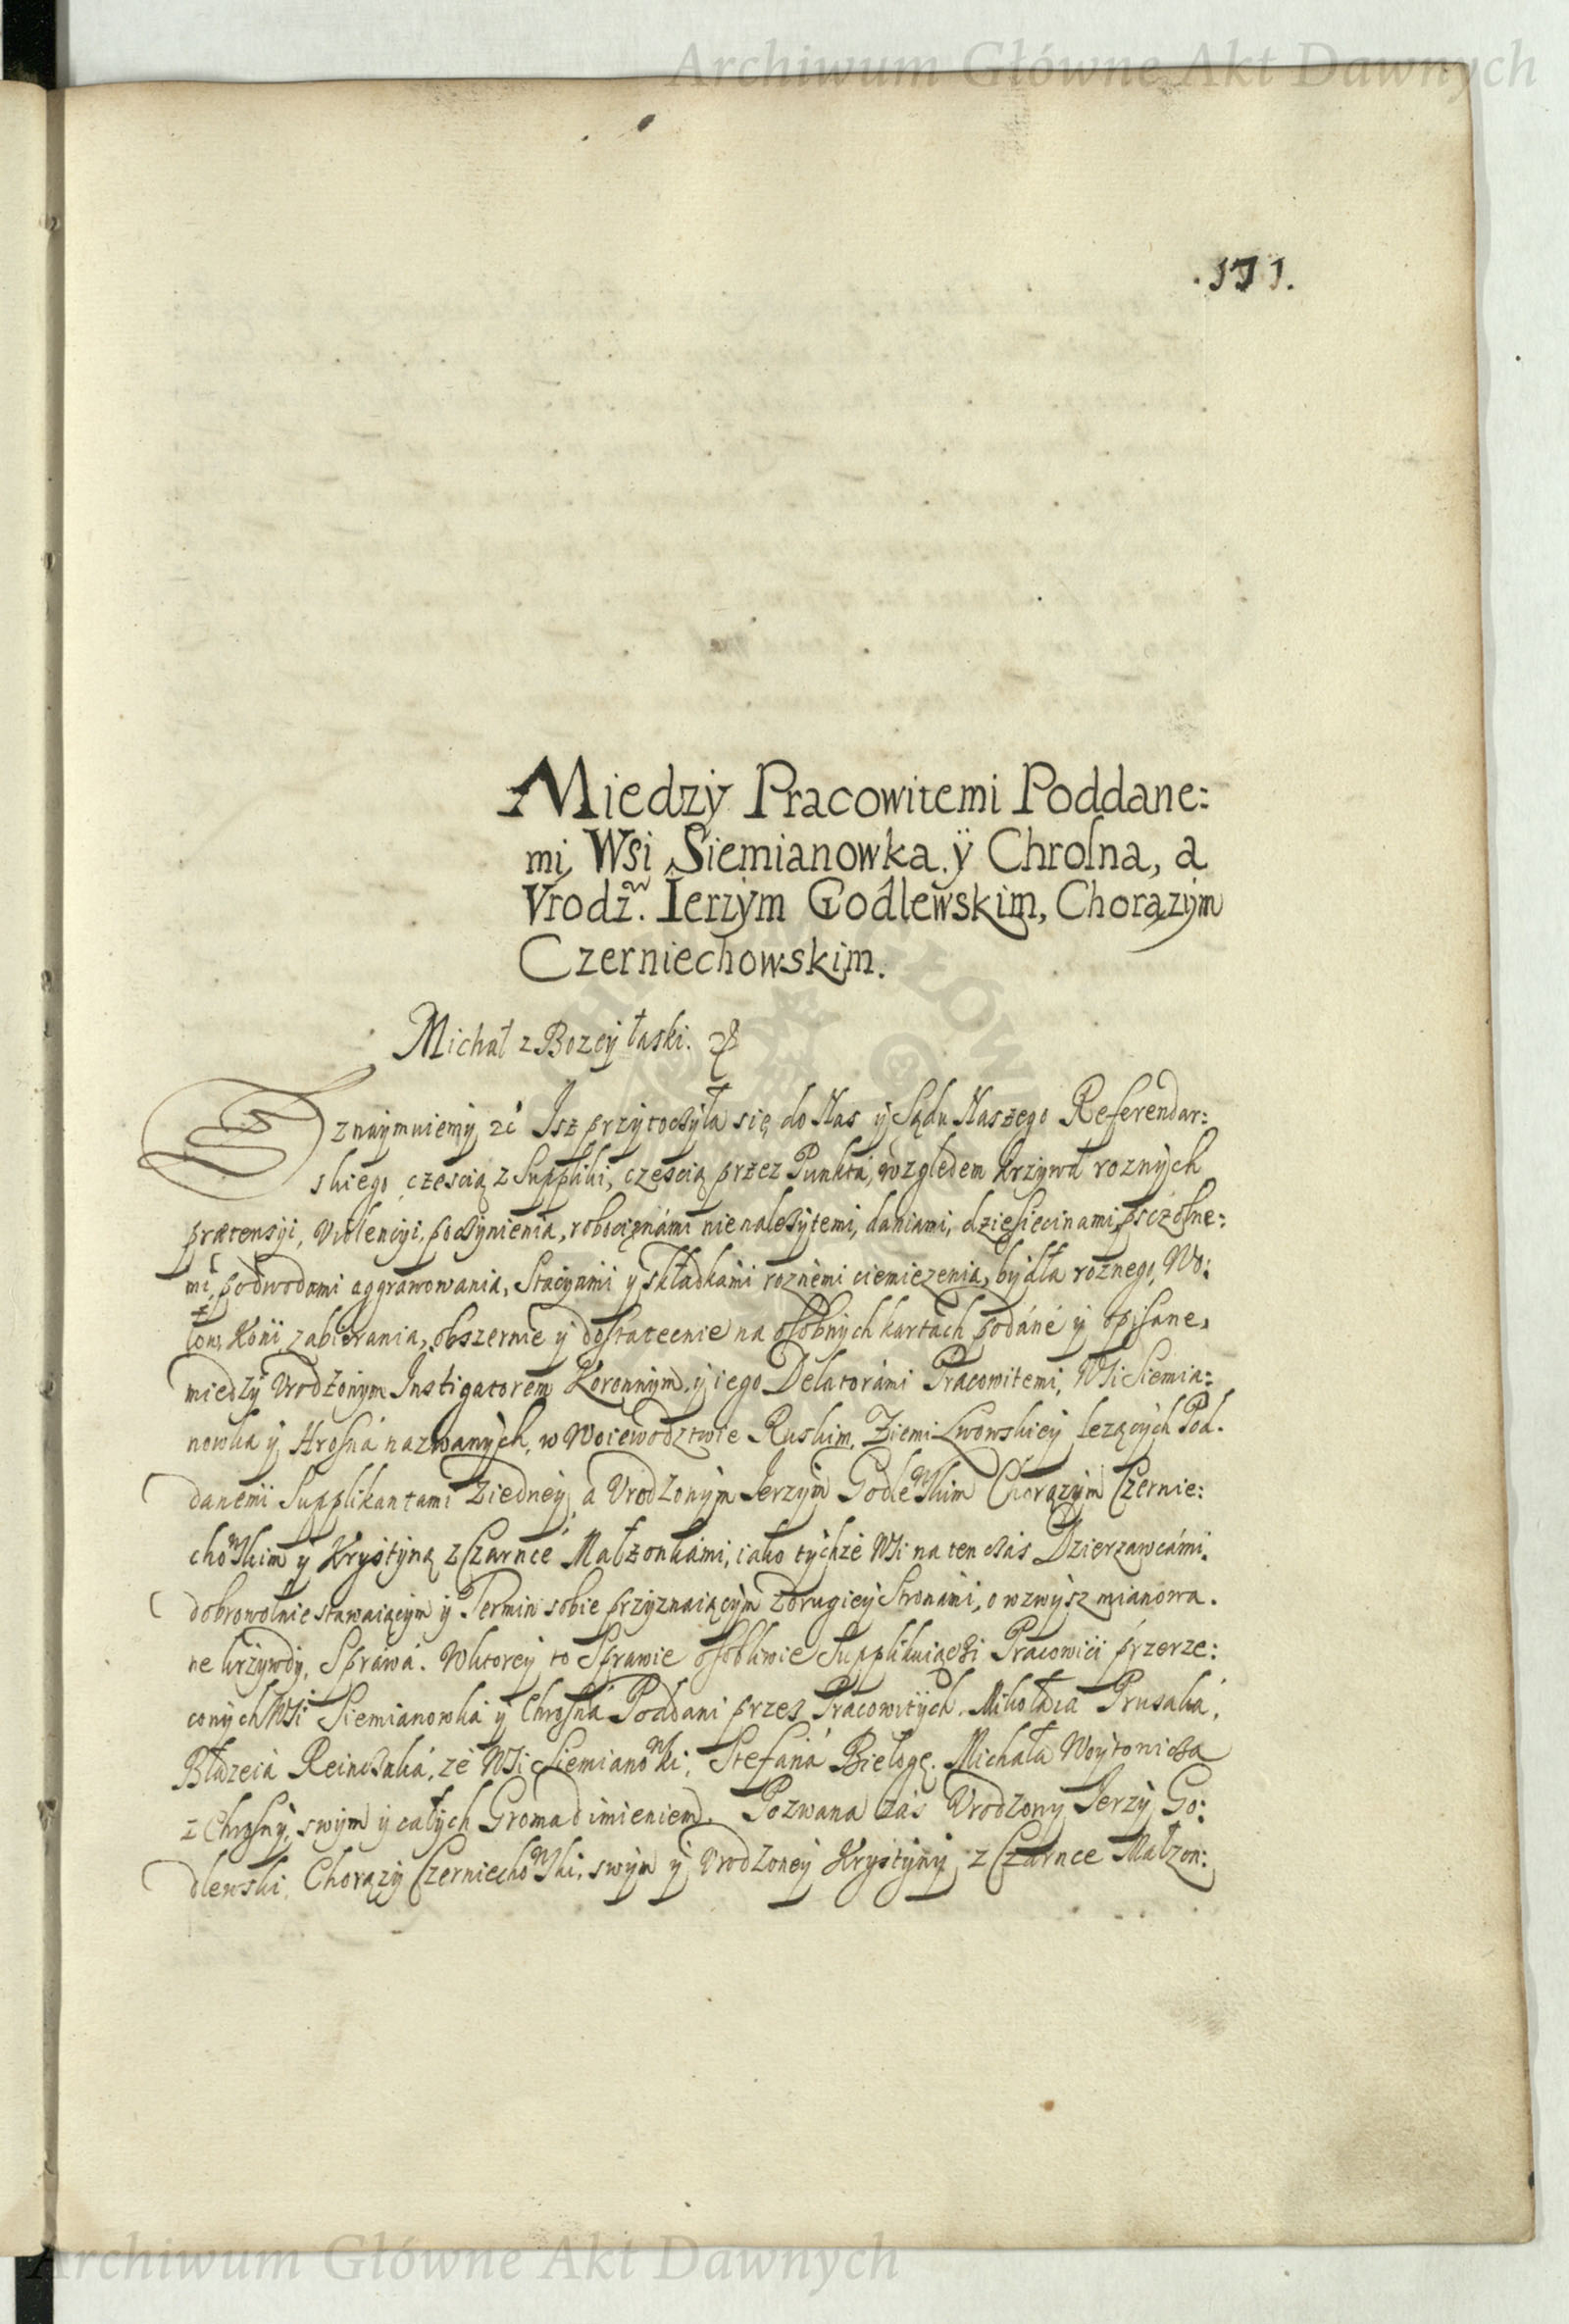 Archiwum Główne Akt Dawnych
.171.
Miedzy Pracowitemi Poddane:
mi, Wsi Siemianowka. ÿ Chrosna, a
Vrodz. Ierzÿm Godlewskim, Chorązÿm
Czerniechowskim.
Michał z Bozey łaski.
Oznaymuiemy ze Isz przytoczyła się do Nas y Sądu Naszego Referendar:
skiego, częscią z Suppliki, częscią przez Punkta, względem krzywd roznych
prætensyi, Violencyi, poczynienia, robociznámi nienalezytemi, daniami, dziesiecinami, psczołne:
mi, podwodami aggrawowania, Stacyami y składkami roznemi ciemiezenia, bydła roznego, Wo:
łow, Koni, zabierania, obszernie y dostatecnie na osobnych kartach podáné y opisane,
miedzy Vrodzonym Instigatorem Koronnym, y iego Delatorámi Pracowitemi, Wsi Siemia:
nowka y Hrosna nazwanych, w Woiewodztwie Ruskim, Ziemi Lwowskiey lezących Pod.
danemi Supplikantami z iedney, a Vrodzonym Ierzym Godlewskim Chorązym Czernie:
chowskim y Krystyną z Czarnce Małzonkámi, iako tychze Wsi na ten czas Dzierzawcámi.
dobrowolnie stawaiącym y Termin sobie przyznaiącym z drugiey Stronami, o wzwysz mianowa.
ne krzywdy, Sprawá. Wktorey to Sprawie osobliwie Supplikuiączi Pracowici przerze:
conych Wsi Siemianowka y Chrosna Poddani przez Pracowitych, Mikołaia Prusaka,
Błazeia Reinczaka, ze Wsi Siemianowki, Stefana Biełogę, Michała Woytowicza
z Chrosny, swym y całych Gromad imieniem. Pozwana zas Vrodzony Ierzy Go:
dlewski, Chorązy Czerniechowski, swym y Vrodzoney Krystyny z Czarnce Małzon:
Archiwum Główne Akt Dawnych